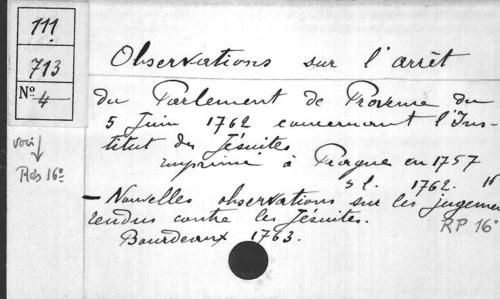 111
713
Nº 4
voir
Rés 16º
Observations sur l'arrêt
du Parlement de Provence du
5 Juin 1762 concernant l'Ins-
titut des Jésuites
imprimé à Prague en 1757
s l. 1762.
- Nouvelles observations sur les jugemen
rendus contre les Jésuites.
Bourdeaux 1763.
RP 16º